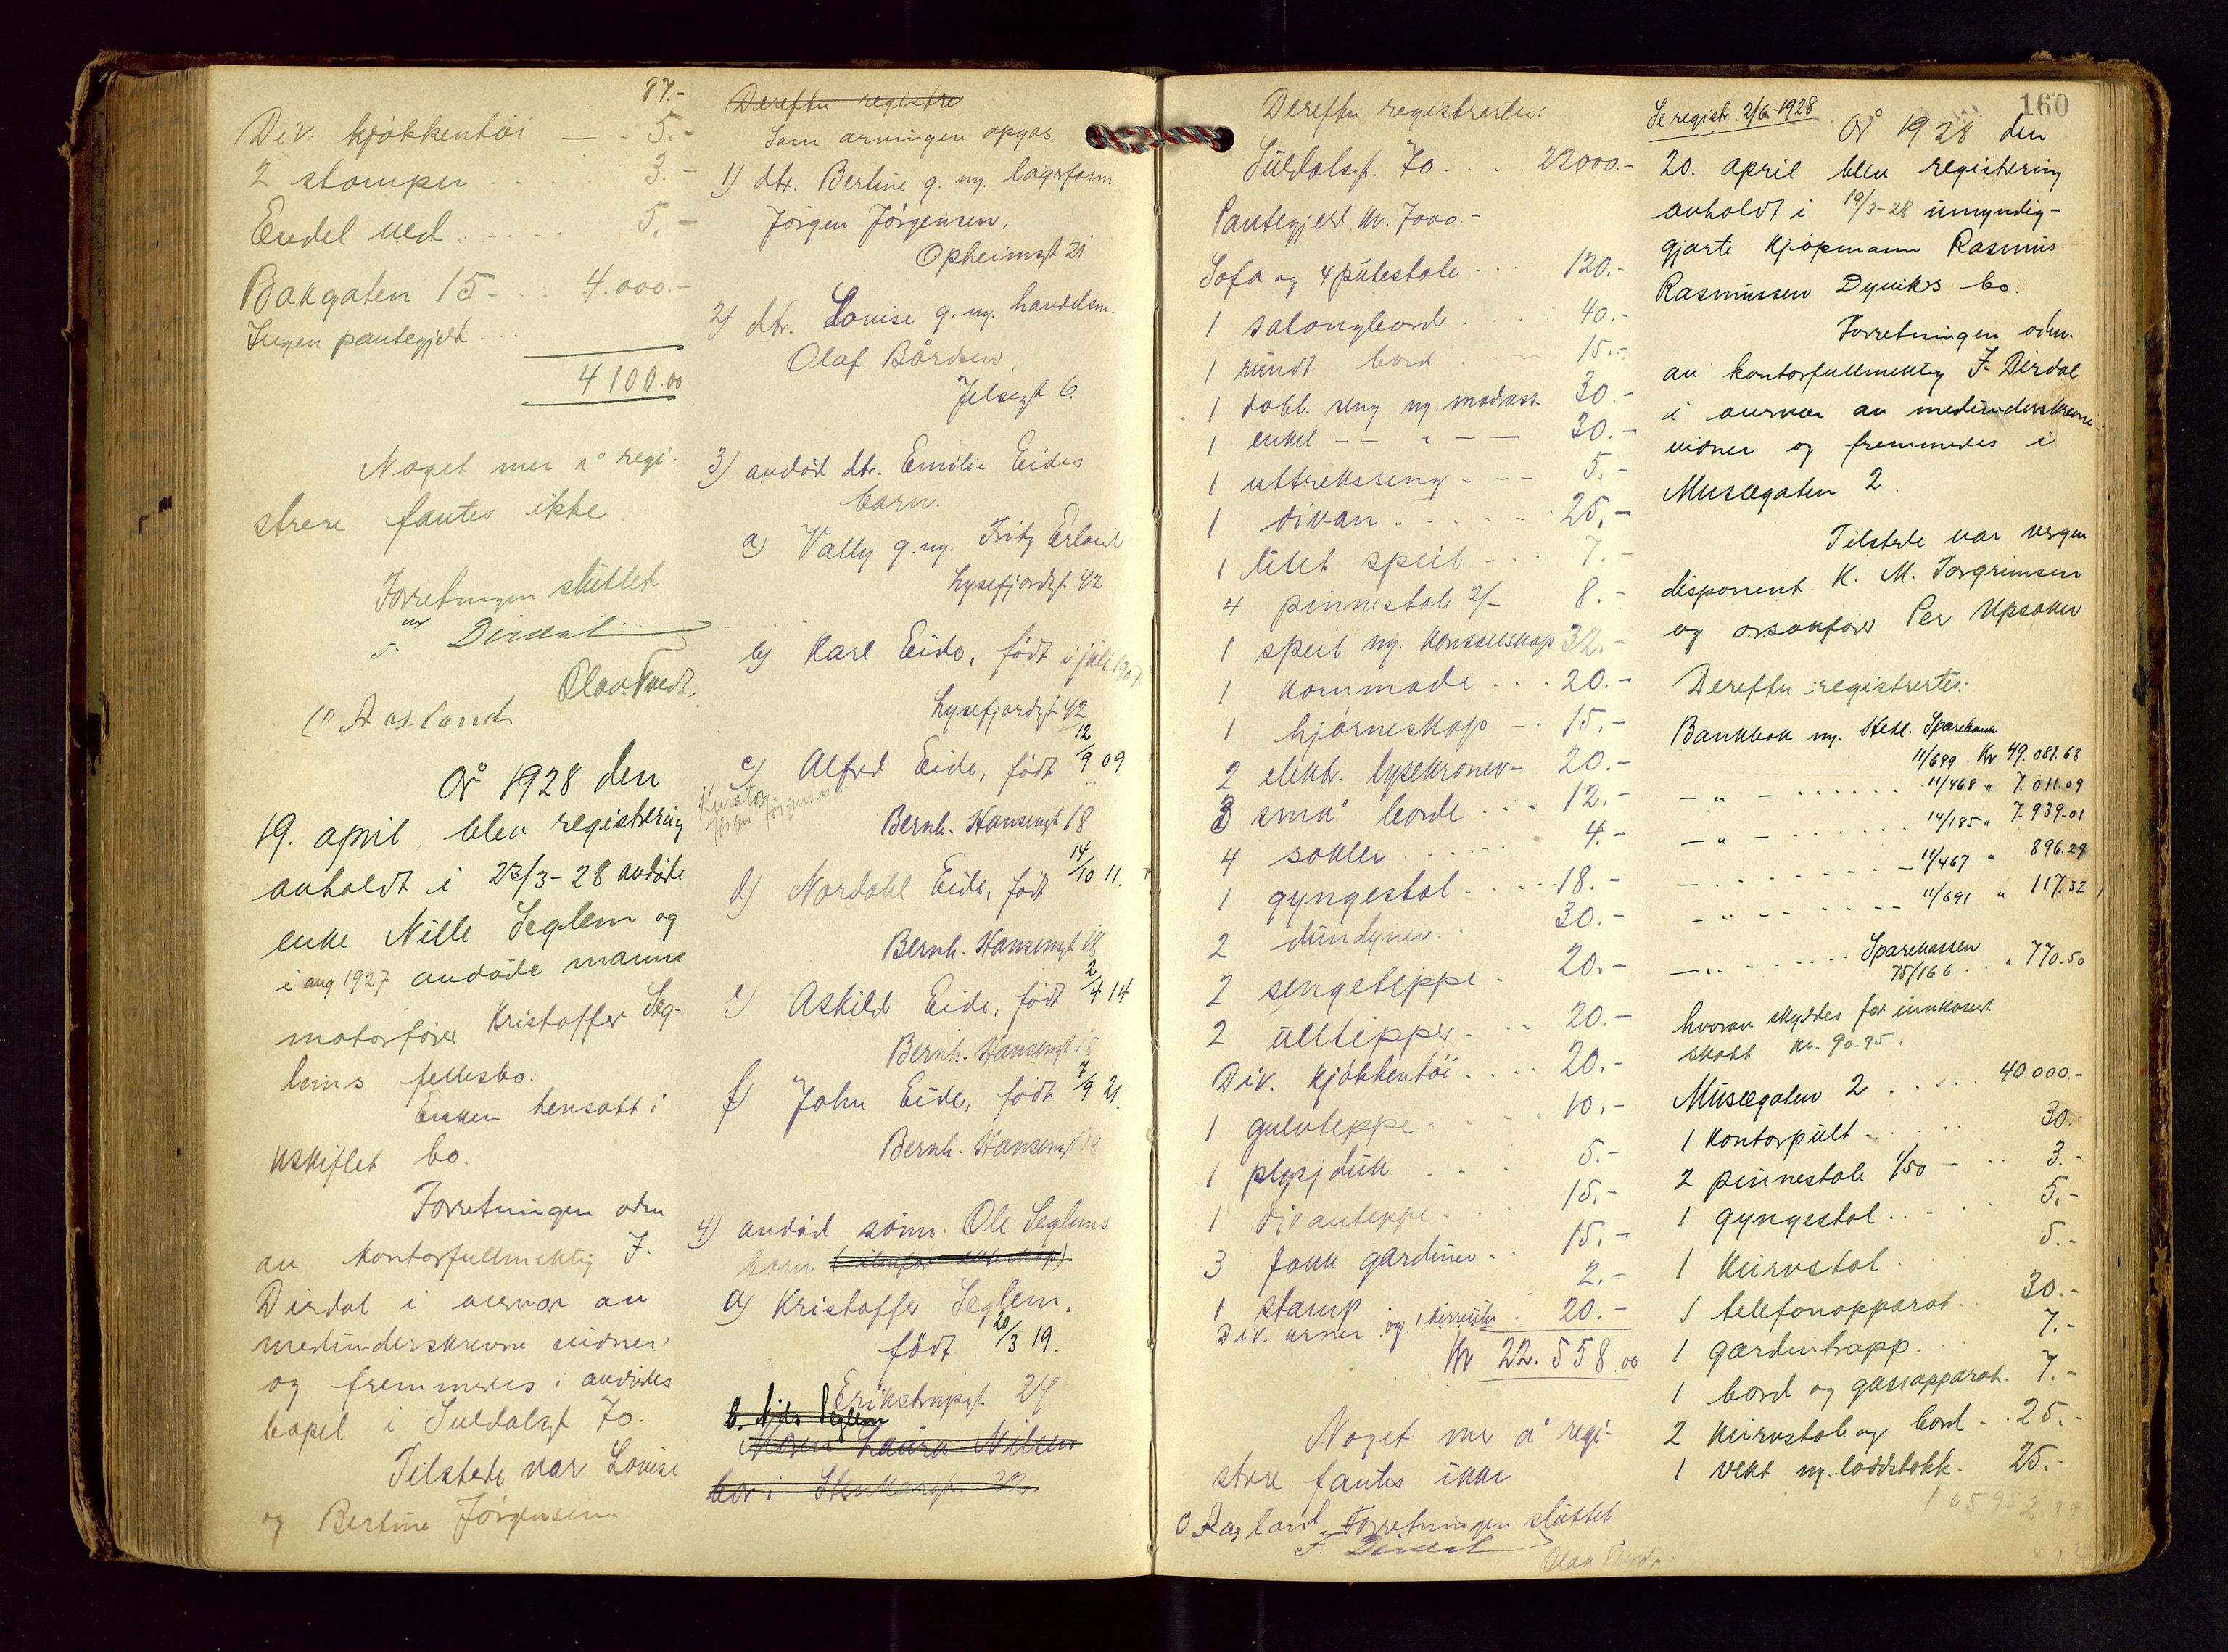 87.-
Div. kjøkkentøi — - 5.-
2 stamper - - . . . 3.-
Endel ved . . . . . 5.-
Bakgaten 15 - . . 4.000.-
Ingen pantegjeld . . .
4100.00
Noget mer å regi-
strere fantes ikke.
Forretningen sluttet
Dirdal
Olav Tvedt.
O Aasland
År 1928 den
19. april, blev registrering
avholdt i 23/3-28 avdøde
enke Nille Seglem og
i aug 1927 avdøde manns
motorfører Kristoffer Seg-
lems fellesbo.
Enken hensatt i
uskiftet bo.
Forretningen adm
av kontorfullmektig F.
Dirdal i overvær av
medunderskrevne vidner
og fremmedes i avdødes
bopel i Suldalsgt 70.
Tilstede var Louise
og Bertine Jørgensen.
Derefter registre
Som arvingen opgas.
1) dtr. Bertine g. m. lagerform
Jörgen Jörgensen,
Opheimsgt 21
2) dtr. Louise g. m. handelsm.
Olaf Bårdsen,
Jelsagt 6.
3) avdød dtr. Emilie Eides
barn.
a) Vally g. m. Fritz Erland
Lysefjordgt 42
b) Karl Eide, født i juli 1907
Lysefjordgt 42
c) Alfred Eide, født 12/9 09
Kurator
Jörgen Jörgensen
Bernh. Hansensgt 18
d) Nordahl Eide, født 14/10 11.
Bernh. Hansensgt 18
e) Askild Eide, født 2/4 14
Bernh. Hansensgt 18
f) John Eide, født 7/9 21.
Bernh. Hansensgt 18
4) avdød sønn Ole Seglems
barn
a) Kristoffer Seglem,
født 20/3 19.
Erikstrupsgt 24.
b. Seglem
Moren Laura Nilsen
bor i 22.
Derefter registrertes:
Suldalsgt. 70 . . . . 22000.-
Pantegjeld kr. 7000.-
Sofa og 4 putestole - . . 120.-
1 salongbord . . . . 40.-
1 rundt bord . . . 15.-
1 dobb. seng m. madrass 30.-
1 enkel -- " -- 30.-
1 uttreksseng - -- 5.-
1 divan . . . . . - 25.-
1 litet speil - . . 7.-
4 pinnestole 2/- 8.-
1 speil m. konsollskap 32.-
1 kommode . . . 20.-
1 hjørneskap - . 15.-
2 elektr. lysekroner - 20.-
3 små borde . . . 12.-
4 sokler . . . . . . 4.-
1 gyngestol - . . . 18.-
2 dundyner . . 30.-
2 sengetepper . 20.-
2 ulltepper . . . 20.-
Div. kjøkkentøi . . . . 20.-
1 gulvteppe . . . . 10.-
1 plysjduk . . . . 5.-
1 divanteppe . . . 15.-
3 fakk gardiner . . 15.-
1 stamp . . . 2.-
Div. 20.-
Kr 22.558.00
Noget mer å regi-
strere fantes ikke
O Aasland Forretningen sluttet
F. Dirdal
Olav Tvedt.
160
Se registr. 2/6-1928
År 1928 den
20. april blev registrering
avholdt i 19/3-28 umyndig-
gjorte kjøpmann Rasmus
Rasmussen Dyviks bo.
Forretningen adm.
av kontorfullmektig F. Dirdal
i overvær av medunderskrevne
vidner og fremmedes i
Musægaten 2.
Tilstede var vergen
disponent K. M. Torgrimsen
og o.r.sakfører Per Upsaker
Derefter registrertes.
Bankbok m. Hetl. Sparebank
11/699 . Kr 49.081.68
- " - . . . . . . 11/468 " 7.011.09
- " - . . . . . . 14/185 " 7.939.01
- . . . . . . . . - 11/467 " 896.29
- " - - - . . - - 11/691 " 117.32
- " - . . . . . . Sparekassen
75/166 . . . " 770.50
hvorav skyddes for innkassert
skatt kr. 90.95.
Musægaten 2 . . . . . 40.000.-
1 kontorpult . . . . . 30.-
2 pinnestole 1/50 - . . 3.-
1 gyngestol . . . . . 5.-
1 kurvstol . . . 5.-
1 telefonapparat . . 30.-
1 gardintrapp. 7.-
1 bord og gassapparat. 7.-
2 kurvstole og bord - . 25.-
1 vekt m. loddstokk. 25.-
105952.89